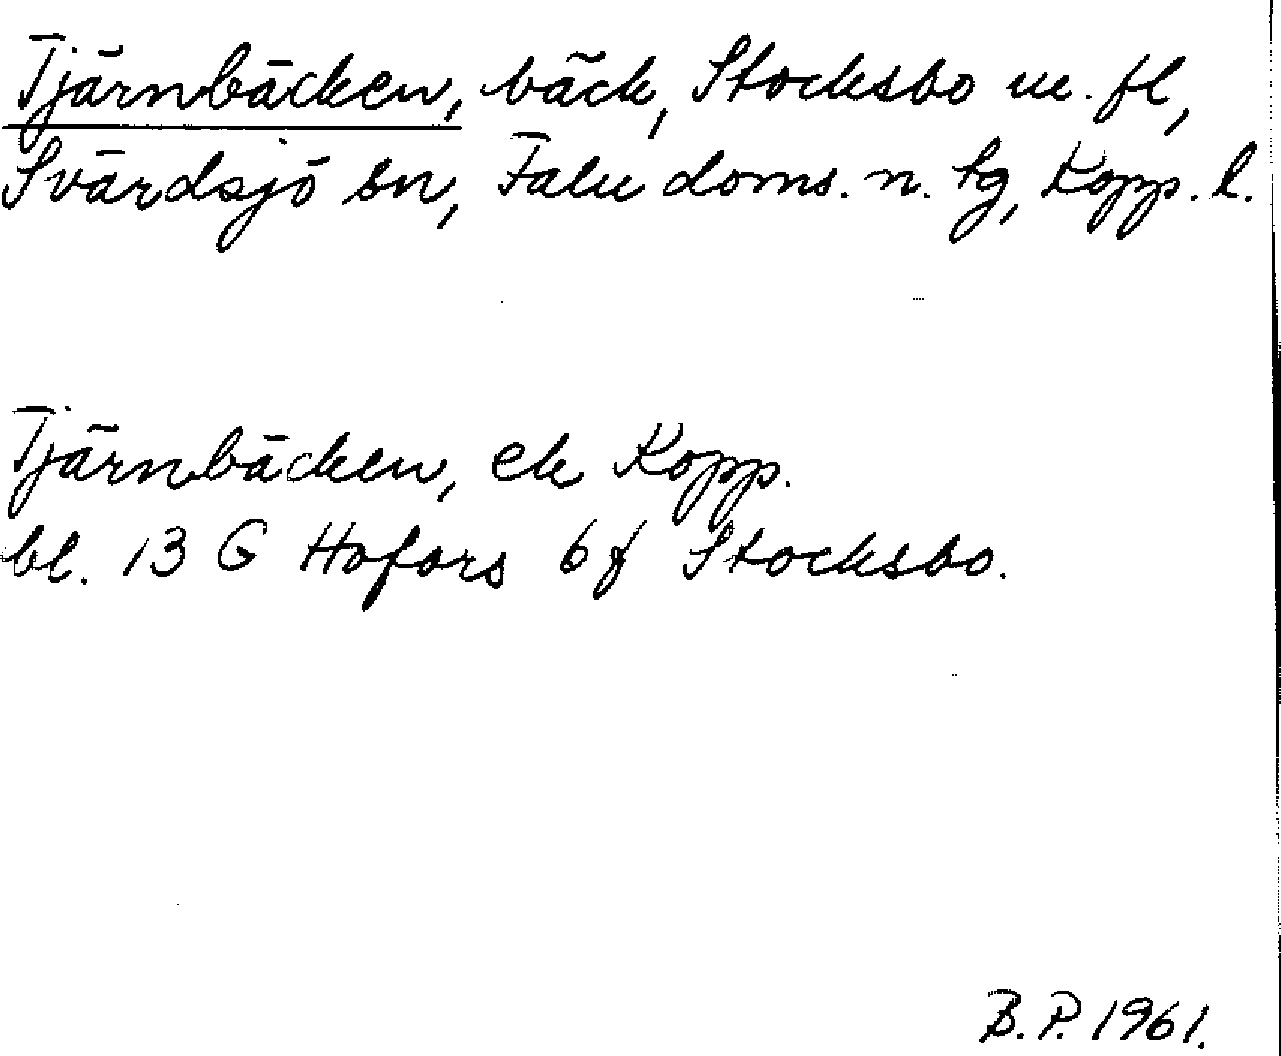 Tjärnbäcken, bäck, Stocksbo m. fl,
Svärdsjö sn, Falu doms. n. tg, Kopp. l.
Tjärnbäcken, ek Kopp.
bl. 13 G Hofors 6 f Stocksbo.
B.P. 1961.